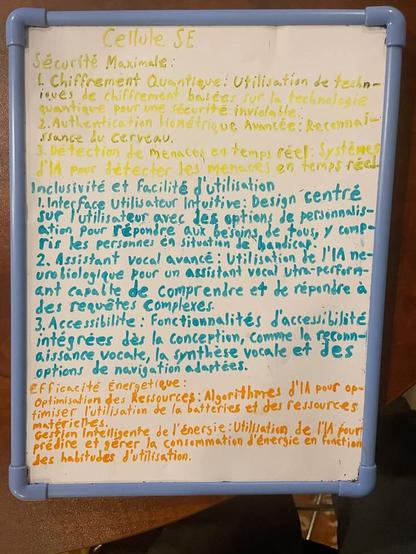 Cellule SE
Sécurité Maximale:
1. Chiffrement Quantique: Utilisation de techn-
iques de chiffrement basées sur la technologie
quantique pour une sécurité inviolable.
2. Authentication biométrique Avancée: Reconnai-
ssance du cerveau.
3. Détection de menaces en temps réel: Systèmes
d'IA pour détecter les menaces en temps réel
Inclusivité et facilité d'utilisation
1. Interface Utilisateur Intuitive: Design centré
sur l'utilisateur avec des options de personnalis-
ation pour répondre aux besoins de tous, y comp-
ris les personnes en situation de handicap.
2. Assistant vocal avancé: Utilisation de l'IA ne-
urobiologique pour un assistant vocal utra-perform-
ant capable de comprendre et de répondre à
des requêtes complexes.
3. Accessibilité: Fonctionnalités d'accessibilité
intégrées dès la conception, comme la reconn-
aissance vocale, la synthèse vocale et des
options de navigation adaptées.
Efficacité Énergétique:
Optimisation des Ressources: Algorithmes d'IA pour op-
timiser l'utilisation de la batteries et des ressources
matérielles.
Gestion Intelligente de l'énergie: Utilisation de l'IA pour
prédire et gérer la consommation d'énergie en fonction
des habitudes d'utilisation.